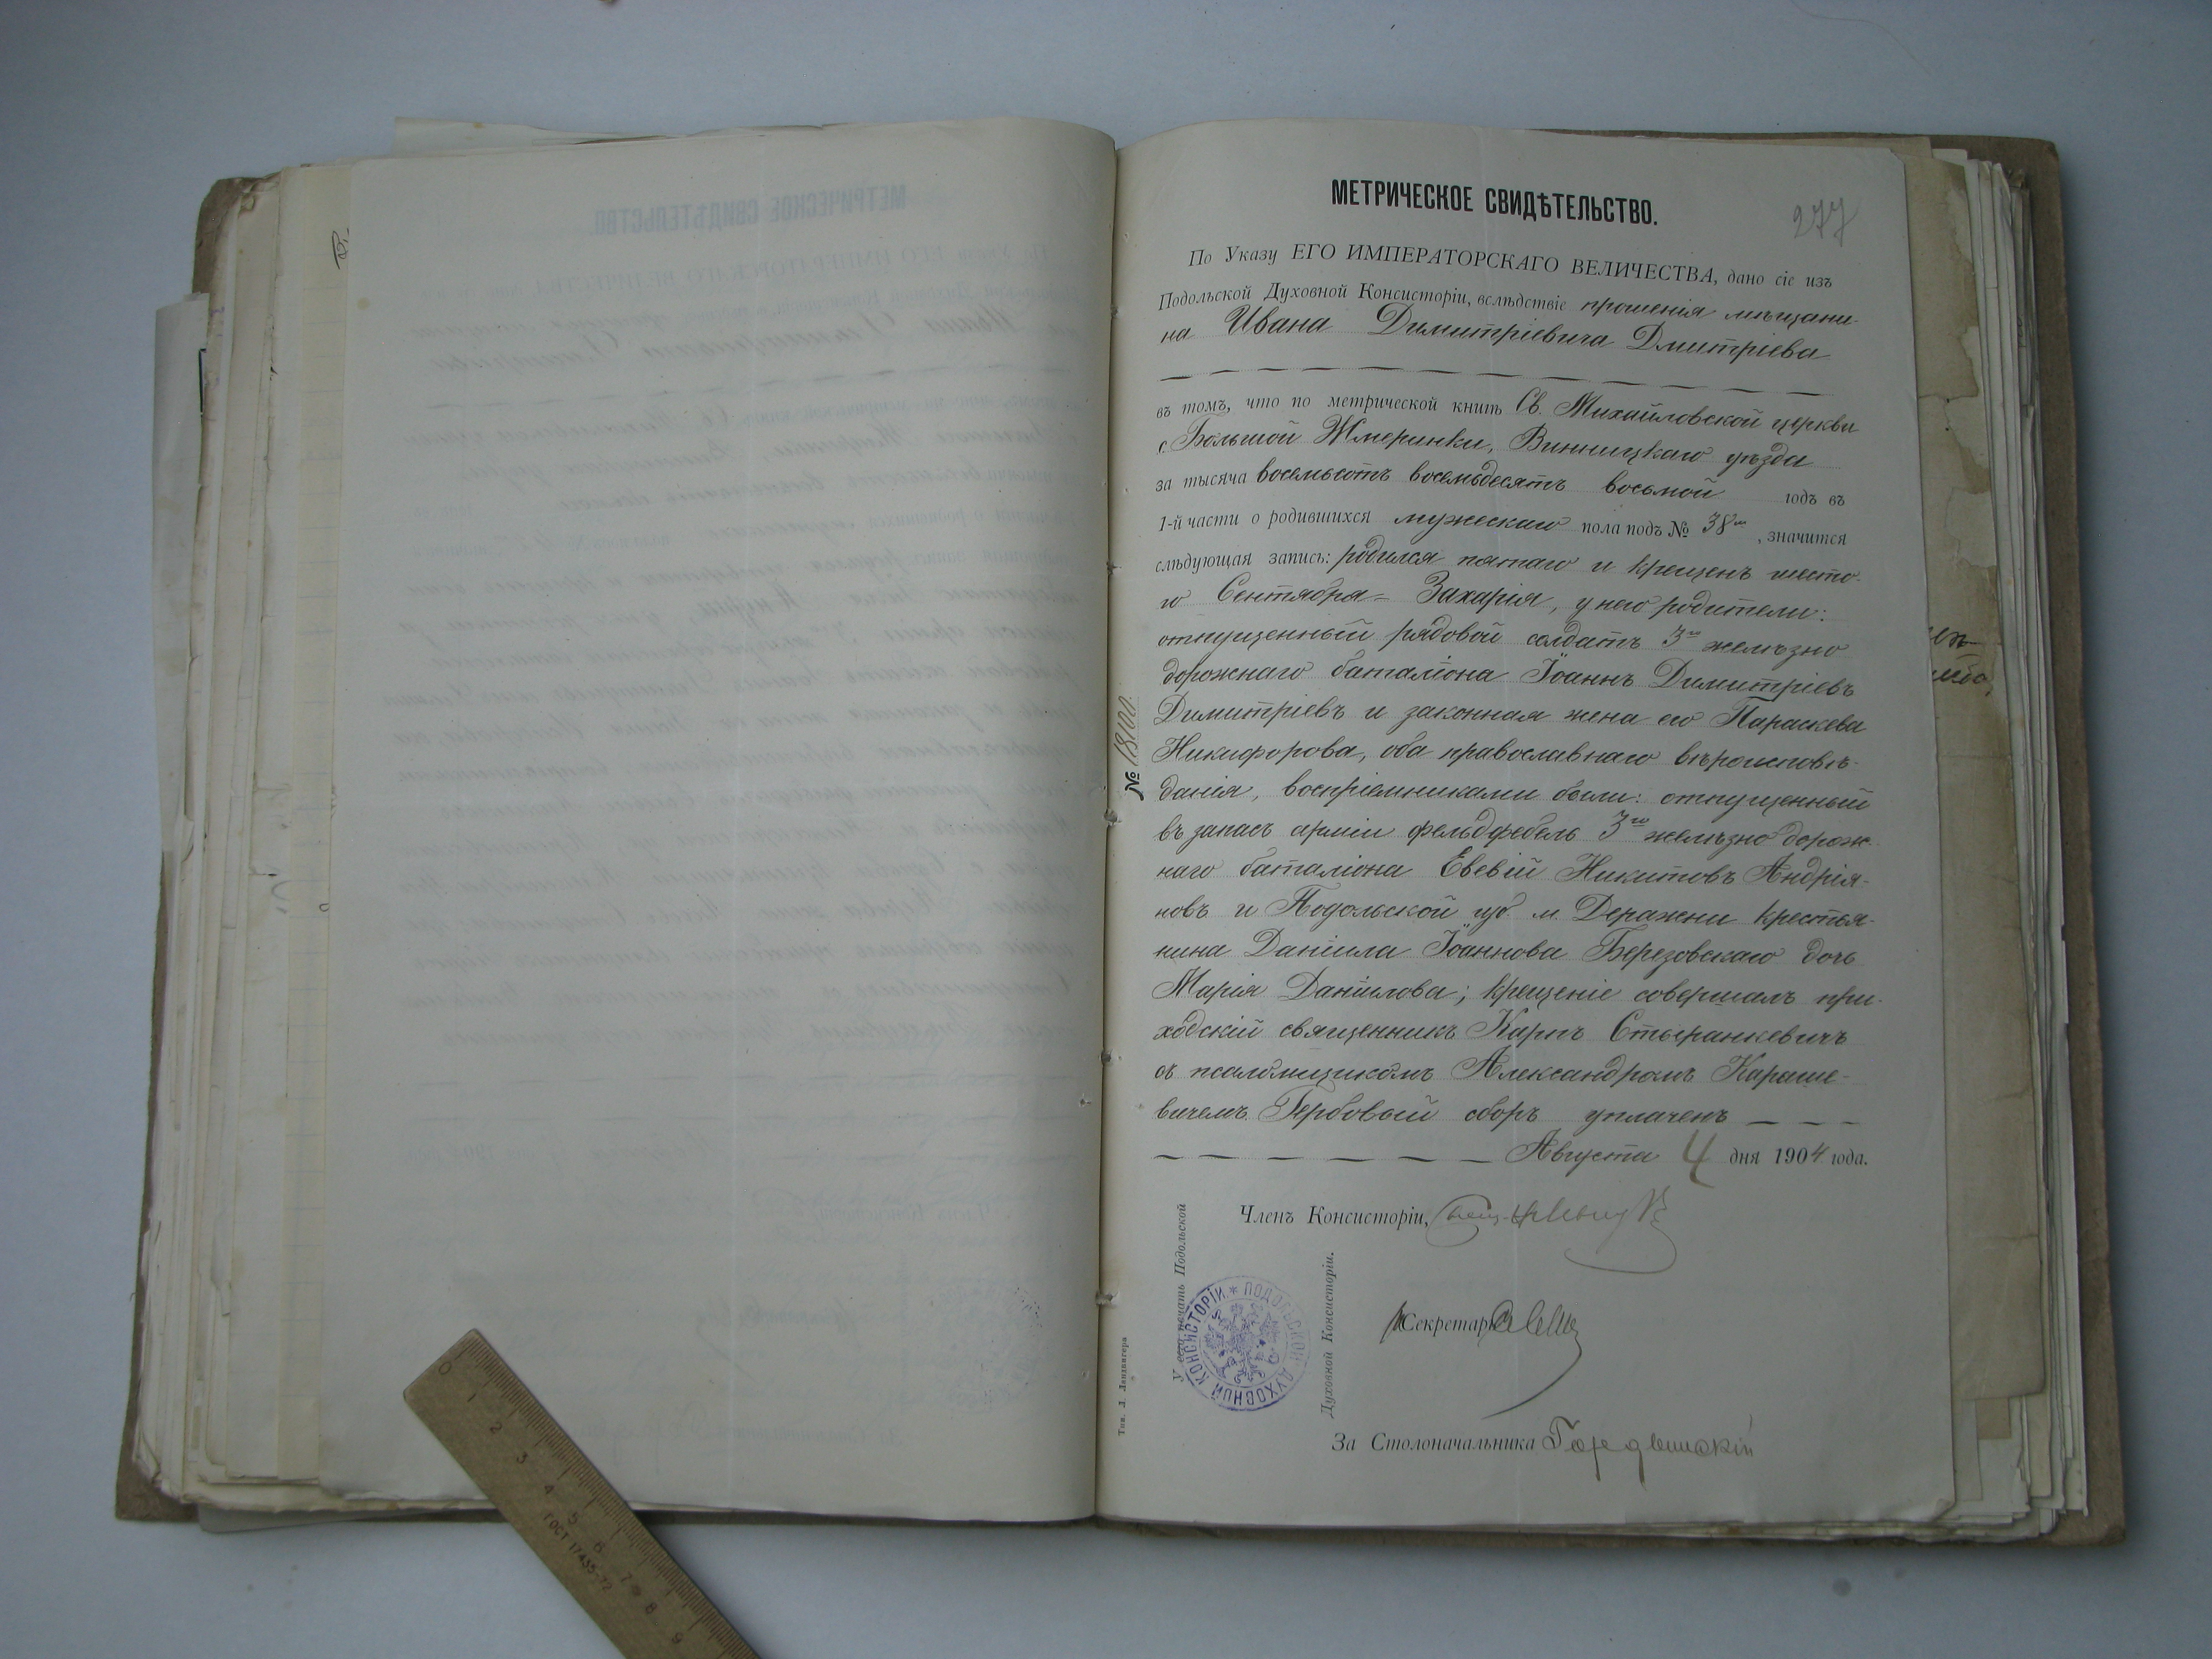 МЕТРИЧЕСКОЕ СВИДѢТЕЛЬСТВО.
277
По Указу ЕГО ИМПЕРАТОРСКАГО ВЕЛИЧЕСТВА, дано сіе изъ
Подольской Духовной Консисторіи, вслѣдствіе прошенія мѣщани-
на Ивана Димитріевича Дмитріева
въ томъ, что по метрической книгѣ Св. Михайловской церкви
с. Большой Жмеринки, Винницкаго уѣзда
за тысяча восемьсотъ восемьдесятъ восьмой годъ въ
1-й части о родившихся мужескаго пола подъ № 38мъ, значится
слѣдующая запись: родился пятаго и крещенъ шесто-
го Сентября – Захарія, у него родители:
отпущенный рядовой солдатъ 3го желѣзно
дорожнаго баталіона Іоаннъ Димитріевъ
Димитріевъ и законная жена его Параскева
Никифорова, оба православнаго вѣроисповѣ-
данія, воспріемниками были: отпущенный
въ запасъ арміи фельдфебель 3го желѣзно дорож
наго баталіона Евсевій Никитовъ Андрія-
новъ и Подольской губ. м. Деражни крестья-
нина Даніила Іоаннова Березовскаго дочь
Марія Даніилова; крещеніе совершалъ при-
ходскій священникъ Карпъ Стефанкевичъ
съ псаломщикомъ Александромъ Караше-
вичемъ. Гербовый сборъ уплаченъ
Августа 4 дня 1904 года.
№ 18100.
Членъ Консисторіи,
Секретарь
За Столоначальника
У сего печать Подольской
Духовной Консисторіи.
ПОДОЛЬСКОЙ ДУХОВНОЙ КОНСИСТОРІИ *
Тип. Л. Ландвигера
МЕТРИЧЕСКОЕ СВИДѢТЕЛЬСТВО.
0 1 2 3 4 5 6 7 8 9
ГОСТ 17435-72